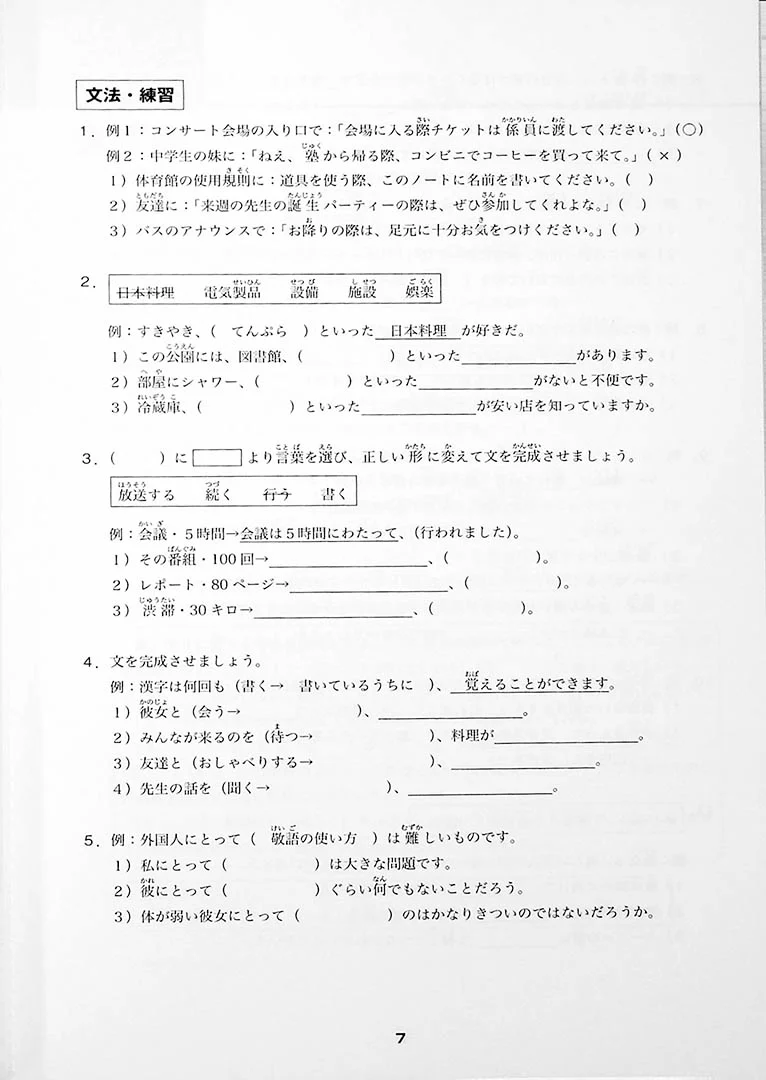 文法・練習
1．例1：コンサート会場の入り口で：「会場に入る際チケットは係員に渡してください。」（○）
例2：中学生の妹に：「ねえ、塾から帰る際、コンビニでコーヒーを買って来て。」（×）
1）体育館の使用規則に：道具を使う際、このノートに名前を書いてください。（　）
2）友達に：「来週の先生の誕生パーティーの際は、ぜひ参加してくれよな。」（　）
3）バスのアナウンスで：「お降りの際は、足元に十分お気をつけください。」（　）
2．日本料理　電気製品　設備　施設　娯楽
例：すきやき、（　てんぷら　）といった　日本料理　が好きだ。
1）この公園には、図書館、（　　　）といった＿＿＿＿＿＿があります。
2）部屋にシャワー、（　　　）といった＿＿＿＿＿＿がないと不便です。
3）冷蔵庫、（　　　）といった＿＿＿＿＿＿が安い店を知っていますか。
3．（　　）に□より言葉を選び、正しい形に変えて文を完成させましょう。
放送する　続く　行う　書く
例：会議・5時間→会議は5時間にわたって、（行われました）。
1）その番組・100回→＿＿＿＿＿＿＿＿、（　　　）。
2）レポート・80ページ→＿＿＿＿＿＿＿＿、（　　　）。
3）渋滞・30キロ→＿＿＿＿＿＿＿＿、（　　　）。
4．文を完成させましょう。
例：漢字は何回も（書く→　書いているうちに　）、　覚えることができます。
1）彼女と（会う→　　　）、＿＿＿＿＿＿＿＿。
2）みんなが来るのを（待つ→　　　）、料理が＿＿＿＿＿＿＿＿。
3）友達と（おしゃべりする→　　　）、＿＿＿＿＿＿＿＿。
4）先生の話を（聞く→　　　）、＿＿＿＿＿＿＿＿。
5．例：外国人にとって（　敬語の使い方　）は難しいものです。
1）私にとって（　　　）は大きな問題です。
2）彼にとって（　　　）ぐらい何でもないことだろう。
3）体が弱い彼女にとって（　　　）のはかなりきついのではないだろうか。
7